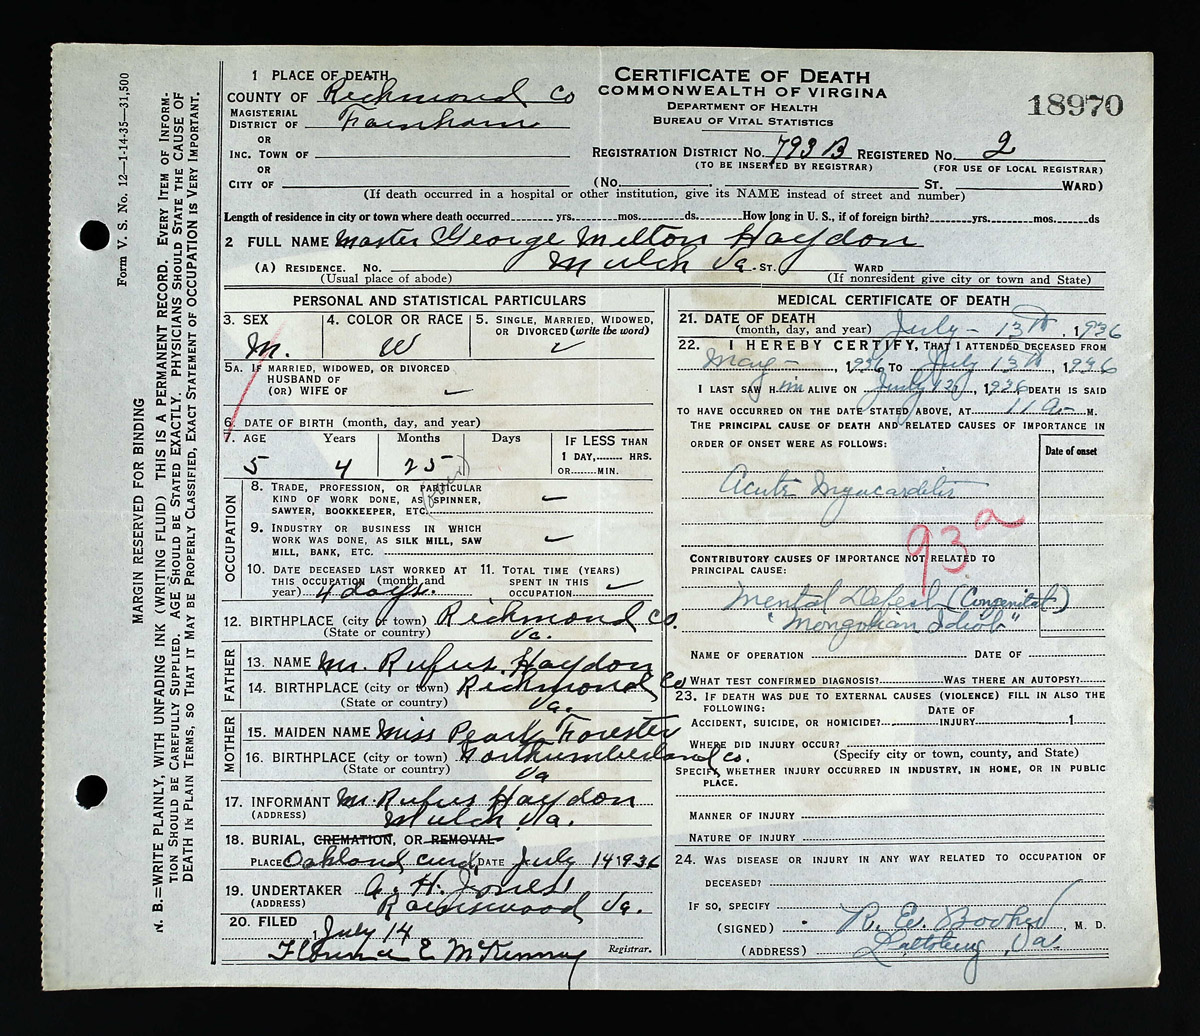 Form V. S. No. 12—1-14-35—31,500
MARGIN RESERVED FOR BINDING
N. B.—WRITE PLAINLY, WITH UNFADING INK (WRITING FLUID) THIS IS A PERMANENT RECORD. EVERY ITEM OF INFORM-
TION SHOULD BE CAREFULLY SUPPLIED. AGE SHOULD BE STATED EXACTLY. PHYSICIANS SHOULD STATE THE CAUSE OF
DEATH IN PLAIN TERMS, SO THAT IT MAY BE PROPERLY CLASSIFIED, EXACT STATEMENT OF OCCUPATION IS VERY IMPORTANT.
CERTIFICATE OF DEATH
COMMONWEALTH OF VIRGINA
DEPARTMENT OF HEALTH
BUREAU OF VITAL STATISTICS
18970
1 PLACE OF DEATH
COUNTY OF Richmond Co
MAGISTERIAL
DISTRICT OF Farnham
OR
INC. TOWN OF
REGISTRATION DISTRICT NO. 793B REGISTERED NO. 2
(TO BE INSERTED BY REGISTRAR) (FOR USE OF LOCAL REGISTRAR)
OR
CITY OF (No. ST. WARD)
(If death occurred in a hospital or other institution, give its NAME instead of street and number)
Length of residence in city or town where death occurred yrs. mos. ds. How long in U. S., if of foreign birth? yrs. mos. ds
2 FULL NAME Master George Melton Haydon
(A) RESIDENCE. No. Mulch Va. ST. WARD
(Usual place of abode) (If nonresident give city or town and State)
PERSONAL AND STATISTICAL PARTICULARS
3. SEX 4. COLOR OR RACE 5. SINGLE, MARRIED, WIDOWED,
OR DIVORCED (write the word)
M. W
5A. IF MARRIED, WIDOWED, OR DIVORCED
HUSBAND OF
(OR) WIFE OF
6. DATE OF BIRTH (month, day, and year)
7. AGE Years Months Days IF LESS THAN
1 DAY, HRS.
OR MIN.
5 4 25
OCCUPATION
8. TRADE, PROFESSION, OR PARTICULAR
KIND OF WORK DONE, AS SPINNER,
SAWYER, BOOKKEEPER, ETC.
9. INDUSTRY OR BUSINESS IN WHICH
WORK WAS DONE, AS SILK MILL, SAW
MILL, BANK, ETC.
10. DATE DECEASED LAST WORKED AT
THIS OCCUPATION (month and
year) 4 days.
11. TOTAL TIME (YEARS)
SPENT IN THIS
OCCUPATION
12. BIRTHPLACE (city or town) Richmond Co.
(State or country) Va.
FATHER
13. NAME Mr. Rufus Haydon
14. BIRTHPLACE (city or town) Richmond Co
(State or country) Va.
MOTHER
15. MAIDEN NAME Miss Pearl Forester
16. BIRTHPLACE (city or town) Northumberland Co.
(State or country) Va
17. INFORMANT Mr. Rufus Haydon
(ADDRESS) Mulch Va.
18. BURIAL, CREMATION, OR REMOVAL
PLACE Oakland DATE July 14 1936
19. UNDERTAKER A. H. Jones
(ADDRESS) Rainswood Va.
20. FILED July 14
Florence E McKenney Registrar.
MEDICAL CERTIFICATE OF DEATH
21. DATE OF DEATH
(month, day, and year) July - 13th, 1936
22. I HEREBY CERTIFY, THAT I ATTENDED DECEASED FROM
May - , 1936 TO July 13th, 1936
I LAST SAW H im ALIVE ON July 13, 1936 DEATH IS SAID
TO HAVE OCCURRED ON THE DATE STATED ABOVE, AT 11 a. M.
THE PRINCIPAL CAUSE OF DEATH AND RELATED CAUSES OF IMPORTANCE IN
ORDER OF ONSET WERE AS FOLLOWS:
Date of onset
Acute Myocarditis
93a
CONTRIBUTORY CAUSES OF IMPORTANCE NOT RELATED TO
PRINCIPAL CAUSE:
Mental Defect (Congenital)
"Mongolian Idiot"
NAME OF OPERATION DATE OF
WHAT TEST CONFIRMED DIAGNOSIS? WAS THERE AN AUTOPSY?
23. IF DEATH WAS DUE TO EXTERNAL CAUSES (VIOLENCE) FILL IN ALSO THE
FOLLOWING: DATE OF
ACCIDENT, SUICIDE, OR HOMICIDE? INJURY 1
WHERE DID INJURY OCCUR?
(Specify city or town, county, and State)
SPECIFY WHETHER INJURY OCCURRED IN INDUSTRY, IN HOME, OR IN PUBLIC
PLACE.
MANNER OF INJURY
NATURE OF INJURY
24. WAS DISEASE OR INJURY IN ANY WAY RELATED TO OCCUPATION OF
DECEASED?
IF SO, SPECIFY
(SIGNED) R. E. Booker M. D.
(ADDRESS) Va.